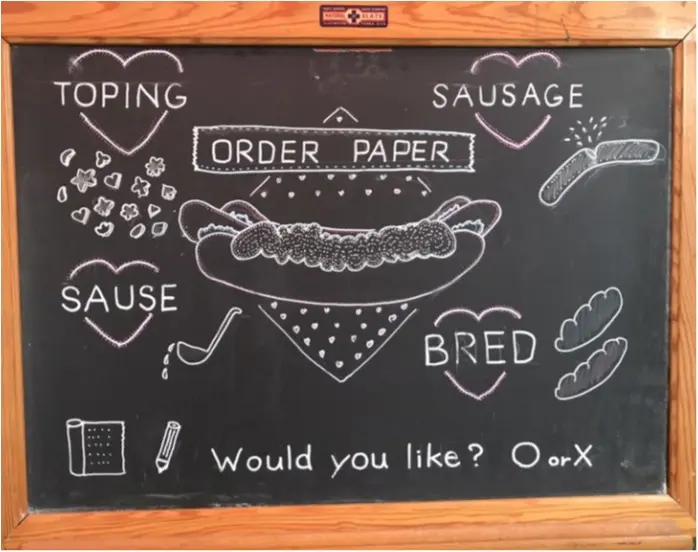 NATURAL SLATE
TOPING
SAUSAGE
ORDER PAPER
SAUSE
BRED
Would you like? O or X